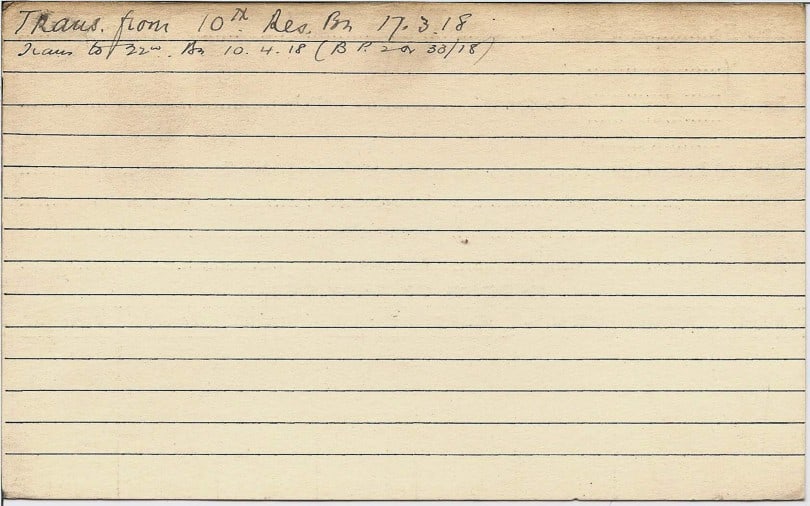 Trans. from 10th Res. Bn 17.3.18
Trans to 22nd Bn 10.4.18 (B P. 2 or 33/18)